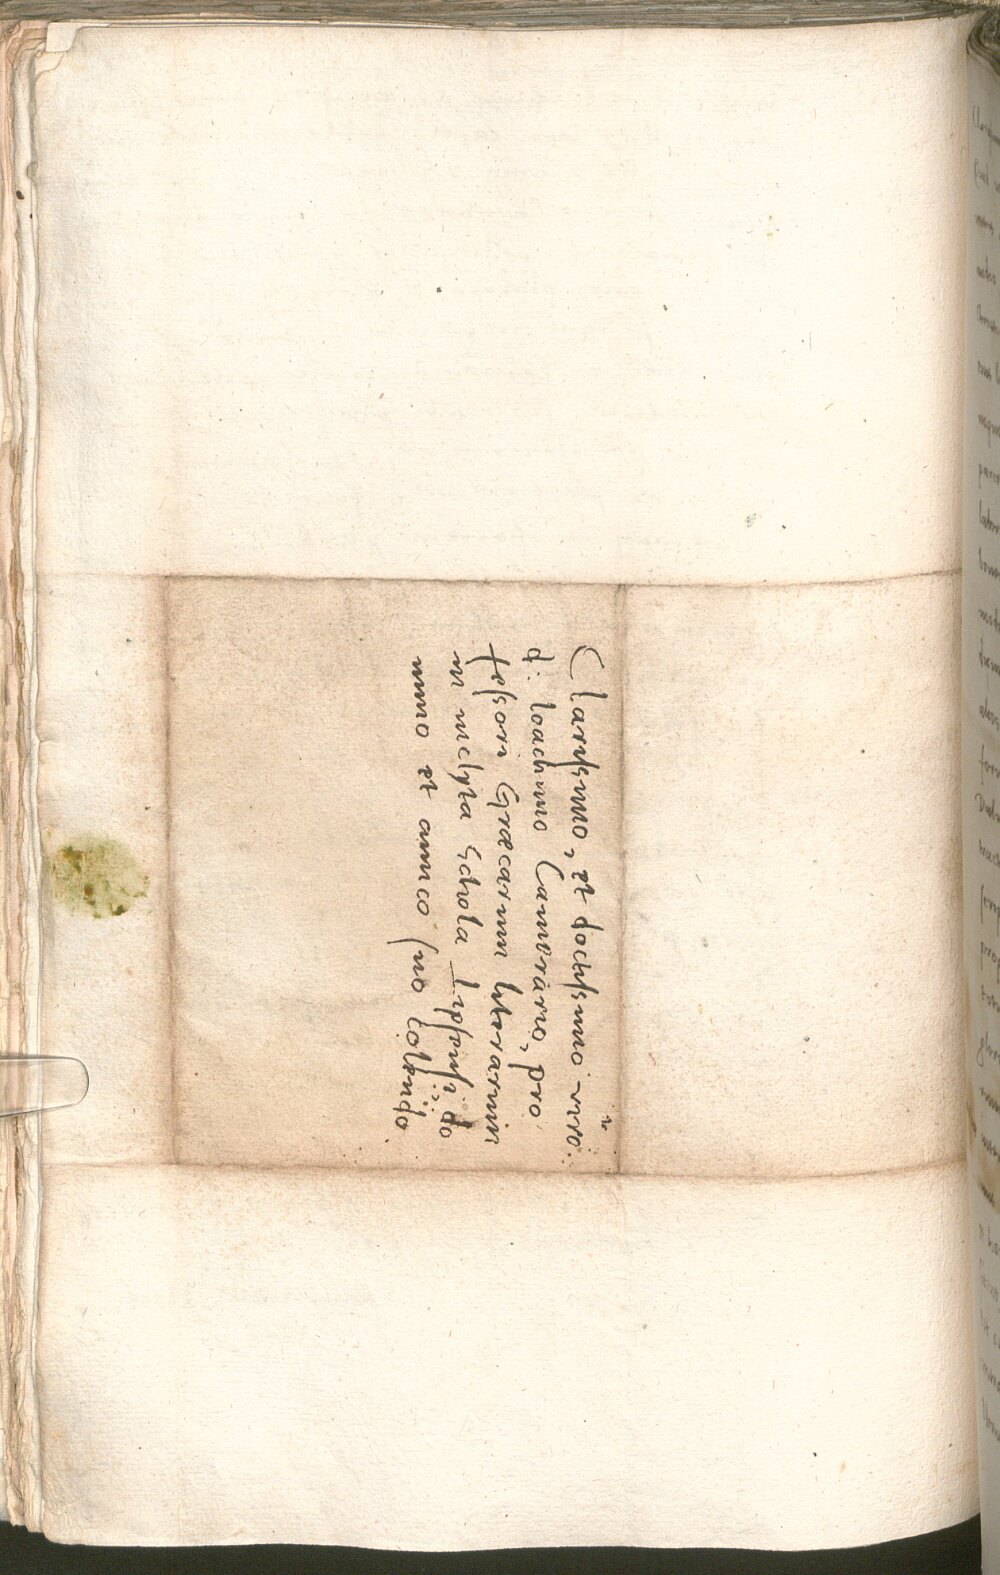 Clarissimo, et doctissimo viro.
d: Ioachimo Camerario, pro
fessori Græcarum literarum
in inclyta Schola Lipsensi, do
mino et amico suo colendo.